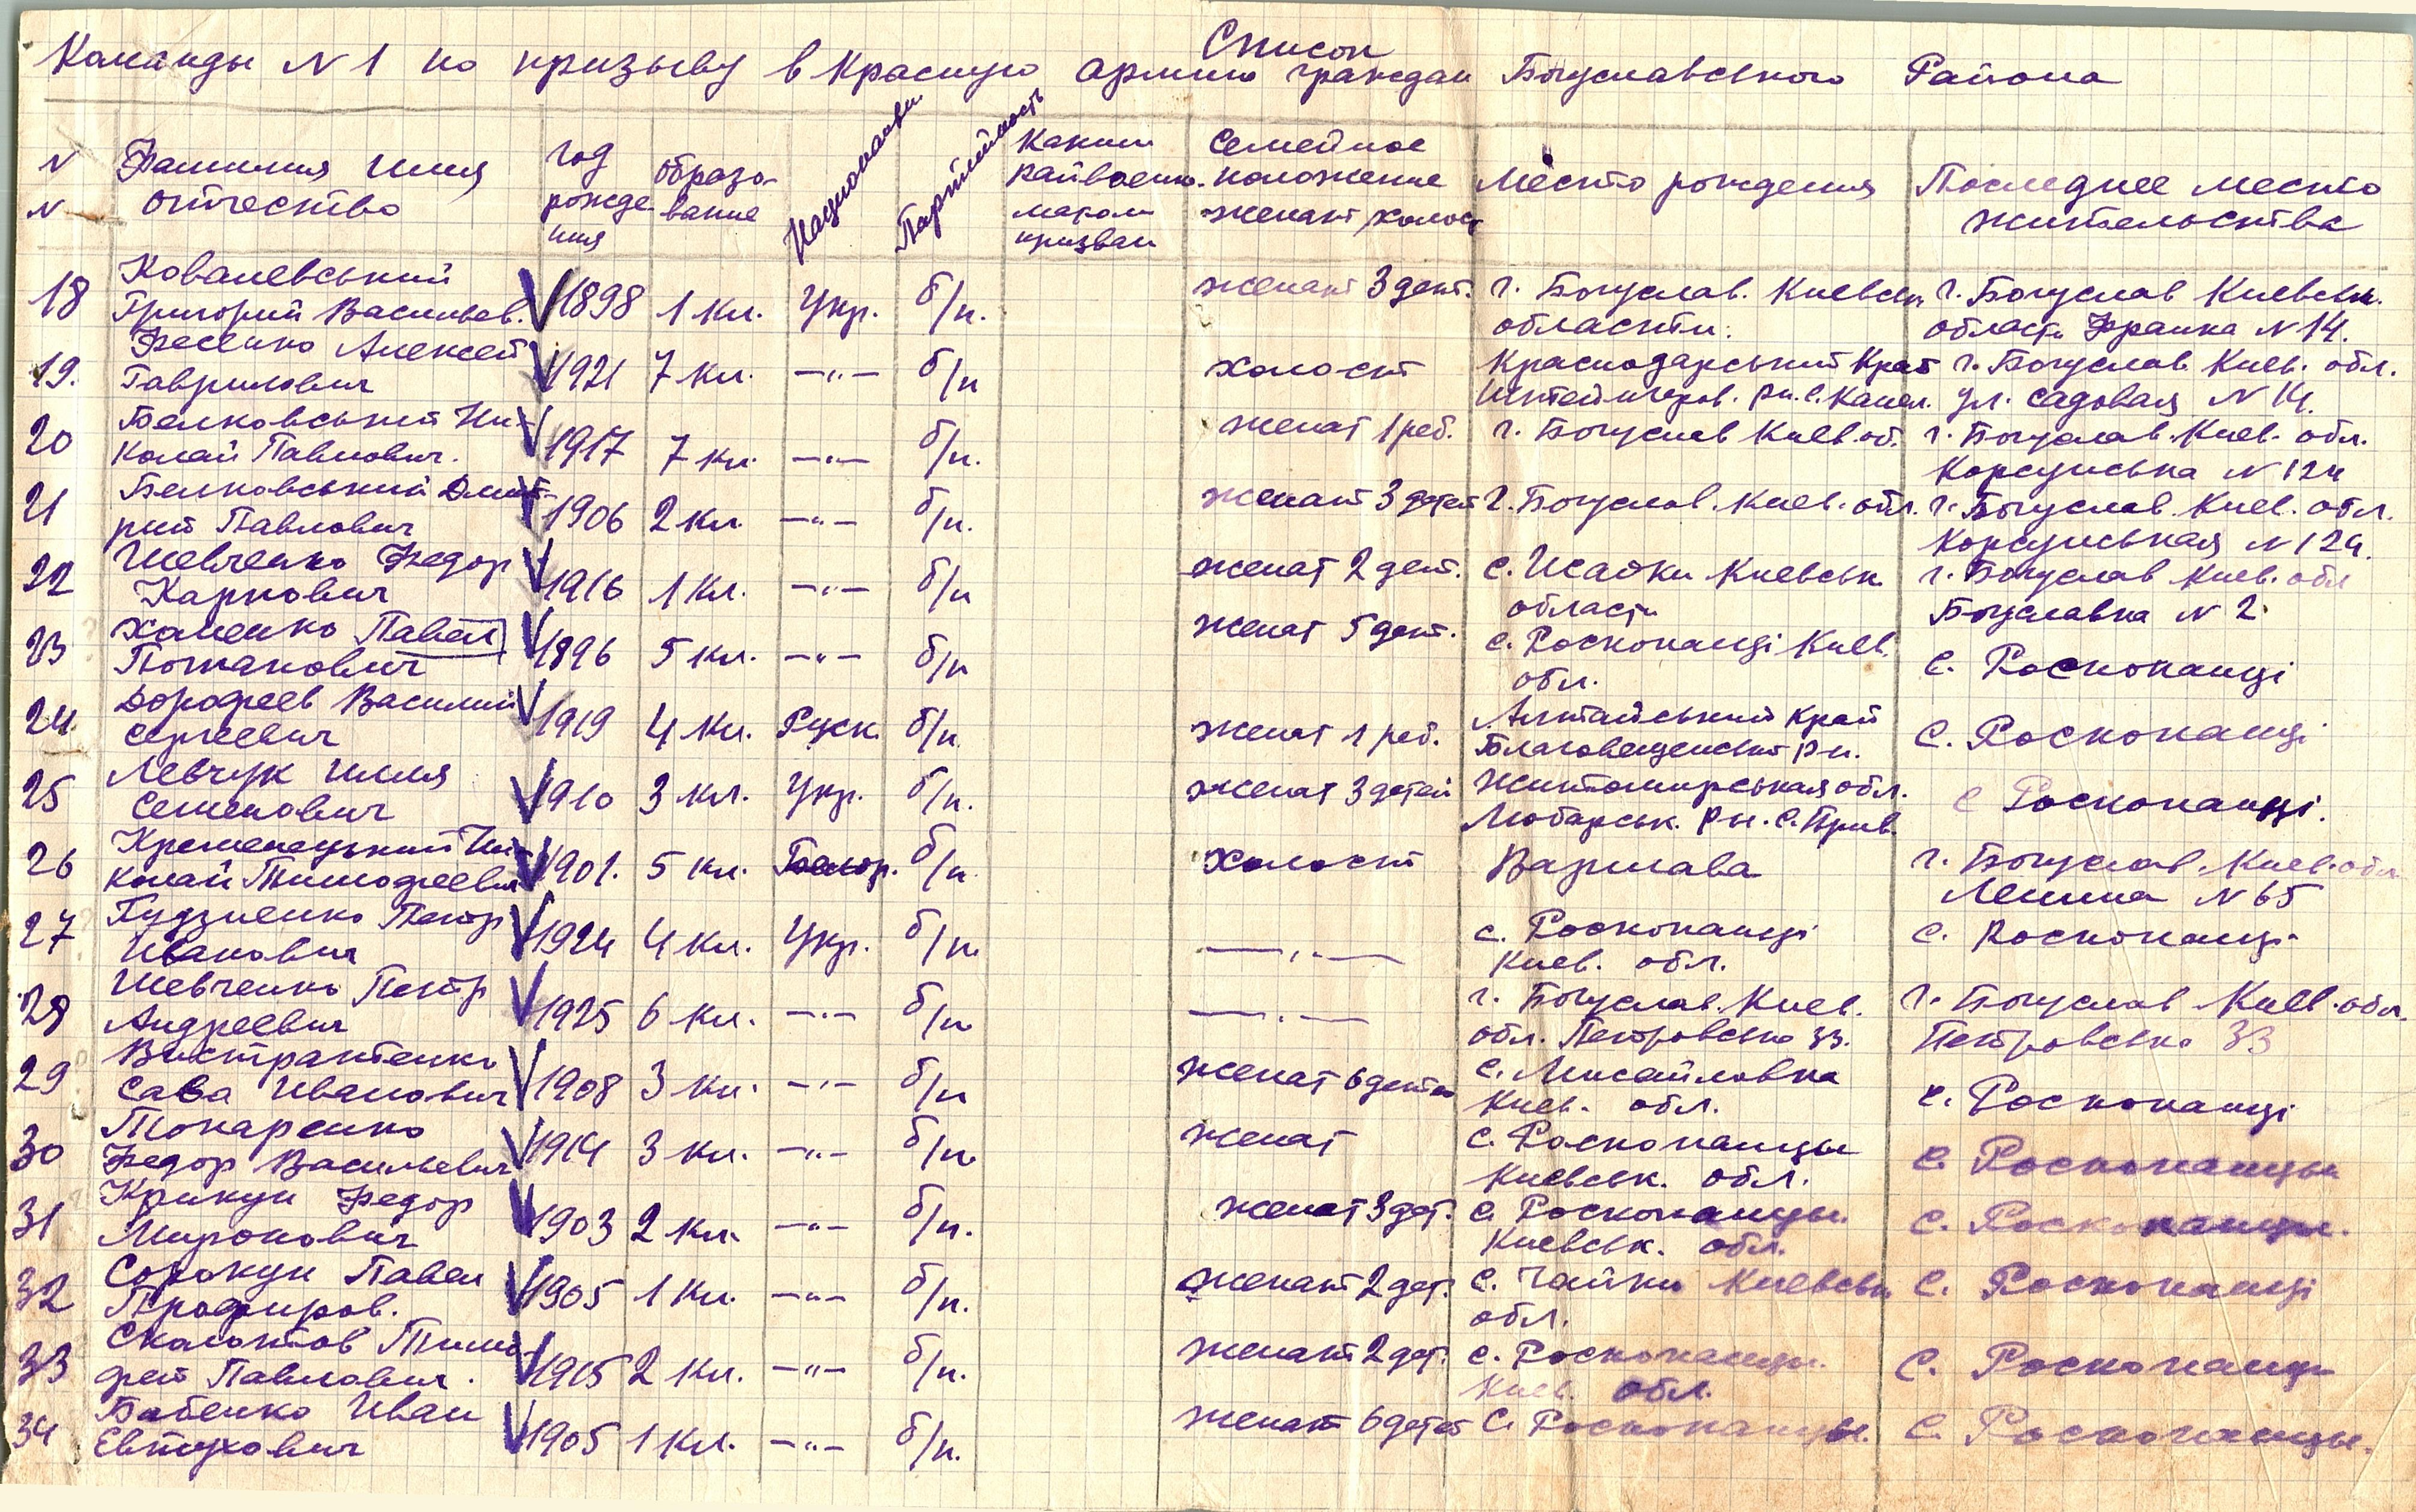 Список
Команды N 1 по призыву в Красную Армию граждан Богуславського Района
N N Фамилия Имя Отчество
год рождения
образование
Национальн.
Партийность
Каким райвоенкоматом призван
Семейное положение женат, холост
Место рождения
Последнее место жительства
18 Ковалевський Григорий Васильев. 1898 1 кл. Укр. б/п. женат 3 дет. г. Богуслав. Киевськ области. г. Богуслав Киевськ. область Франка N 14.
19. Фесенко Алексей Гаврилович 1921 7 кл. —"— б/п холост Краснодарський Край Штейнгеров. рн. с. Камел. г. Богуслав Киев. обл. ул. Садовая N 14.
20 Белковський Николай Павлович. 1917 7 кл. —"— б/п. женат 1 реб. г. Богуслав Киев. об. г. Богуслав. Киев. обл. Корсунська N 124
21 Белковський Дмитрий Павлович 1906 2 кл. —"— б/п. женат 3 детей г. Богуслав. Киев. обл. г. Богуслав. Киев. обл. Корсунськая N 124.
22 Шевченко Федор Карпович 1916 1 кл. —"— б/п женат 2 дет. с. Исайки Киевськ области г. Богуслав Киев. обл Богуславка N 2
23 Хоменко Павел Потапович 1896 5 кл. —"— б/п женат 5 дет. с. Роскопанці Киев. обл. с. Роскопанці
24. Дорофеев Василий Сергеевич 1919 4 кл. Руск. б/п. женат 1 реб. Алтайський Край Благовещенский рн. с. Роскопанці
25 Левчук Илья Семенович 1910 3 кл. Укр. б/п. женат 3 детей Житомирськая обл. Любарськ. рн. с. Прив. с Роскопанці.
26 Кременецький Николай Тимофеевич 1901. 5 кл. Белор. б/п холост Варшава г. Богуслав. Киев. обл Ленина N 65
27 Гудзиенко Петр Иванович 1924 4 кл. Укр. б/п. —"— с. Роскопанці Киев. обл. с. Роскопанці
28 Шевченко Петр Андреевич 1925 6 кл. —"— б/п —"— г. Богуслав. Киев. обл. Петровсько 33. г. Богуслав Киев. обл. Петровсько 33
29 Сава Иванович 1908 3 кл. —"— б/п женат 6 детей с. Мисайловка Киев. обл. с. Роскопанці
30 Токаренко Федор Васильевич 1914 3 кл. —"— б/п. женат с. Роскопанцы Киевськ. обл. с. Роскопанцы
31 Крикун Федор Миронович 1903 2 кл. —"— б/п. женат 3 дет. с. Роскопанцы. Киевськ. обл. с. Роскопанцы.
32 Сорокун Павел Профиров. 1905 1 кл. —"— б/п. женат 2 дет. с. Чайки Киевськ обл. с. Роскопанці
33 Сколотов Тимофей Павлович. 1915 2 кл. —"— б/п. женат 2 дет. с. Роскопанцы. Киев. обл. с. Роскопанці
34 Бабенко Иван Евтухович 1905 1 кл. —"— б/п. женат 6 детей с. Роскопанцы. с. Роскопанцы.